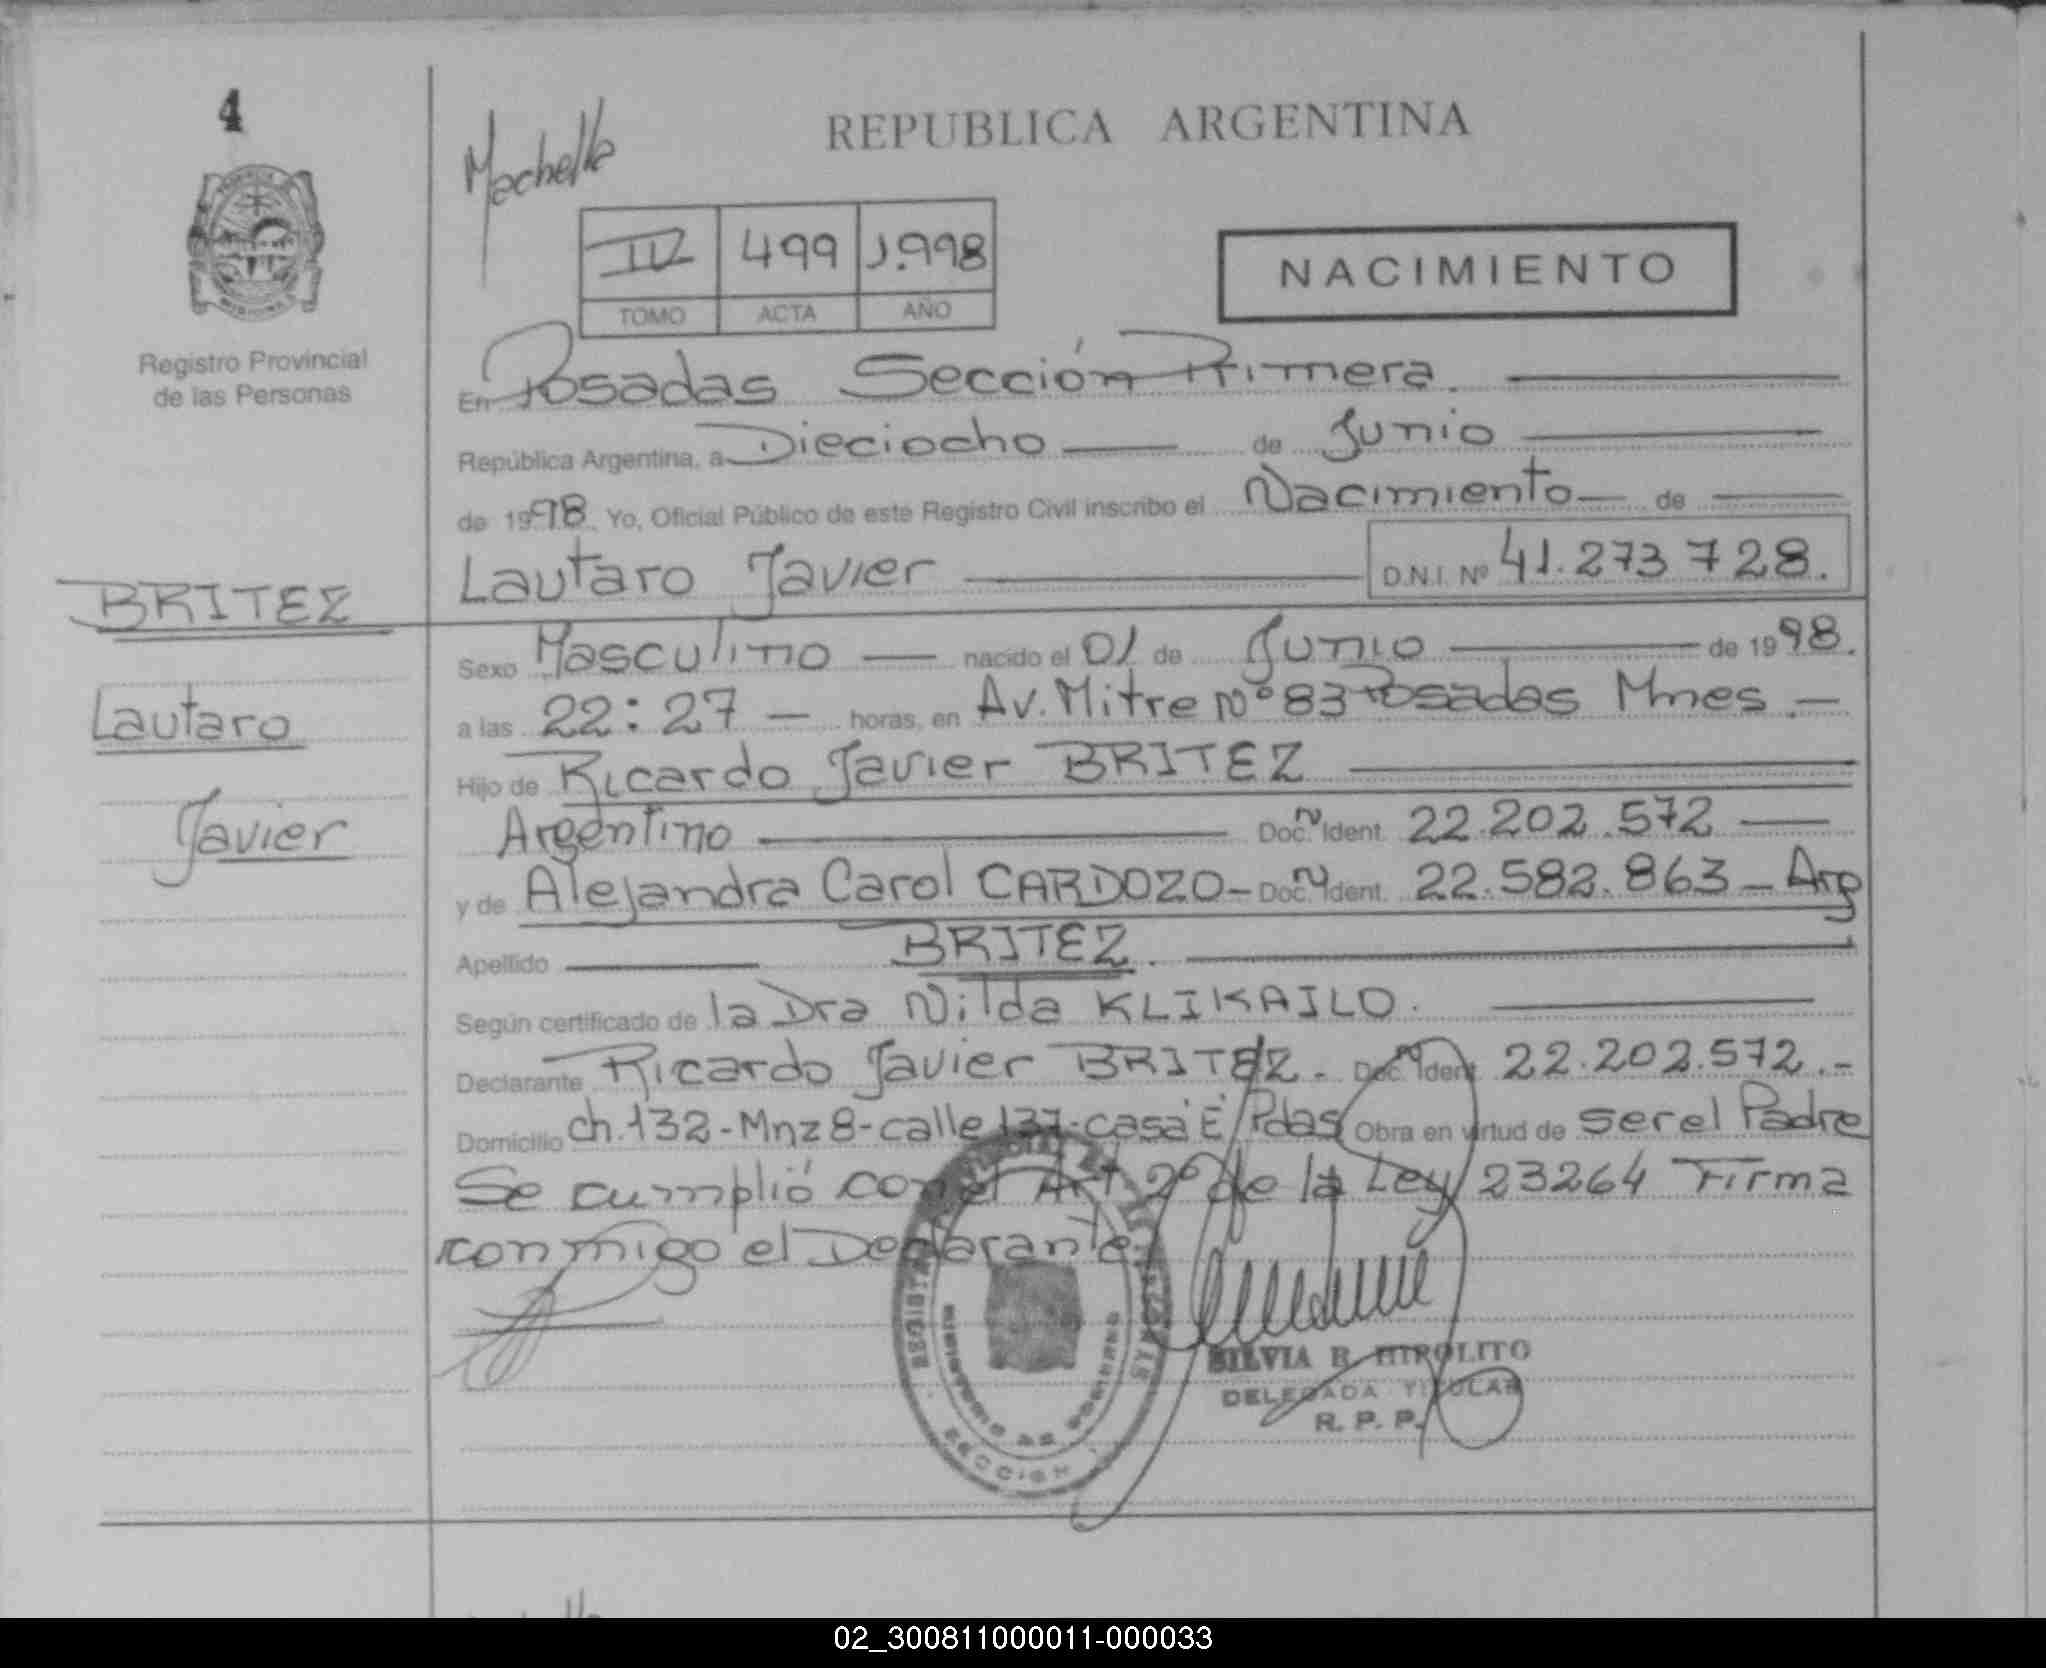 4
Machello
REPUBLICA ARGENTINA
IV 499 1.998
TOMO ACTA AÑO
NACIMIENTO
Registro Provincial
de las Personas
En Posadas Sección Primera.
República Argentina, a Dieciocho de Junio
de 1998. Yo, Oficial Público de este Registro Civil inscribo el Nacimiento de
Lautaro Javier D.N.I. Nº 41.273 728.
BRITEZ
Lautaro
Javier
Sexo Masculino nacido el 01 de Junio de 1998.
a las 22:27 - horas, en Av. Mitre Nº 83 Posadas Mnes.-
Hijo de Ricardo Javier BRITEZ
Argentino Doc. N Ident. 22.202.572
y de Alejandra Carol CARDOZO - Doc. N Ident. 22.582.863 - Arg
Apellido BRITEZ.
Según certificado de la Dra Nilda KLIKAILO.
Declarante Ricardo Javier BRITEZ. Doc. N Ident. 22.202.572.-
Domicilio ch. 132-Mnz 8-calle 137-casa "E" Pdas Obra en virtud de ser el Padre
Se cumplió con el Art 2º de la Ley 23264 Firma
conmigo el Declarante.
SILVIA R. HIPOLITO
DELEGADA TITULAR
R. P. P.
MINISTERIO DE GOBIERNO
SECCION
02_300811000011-000033